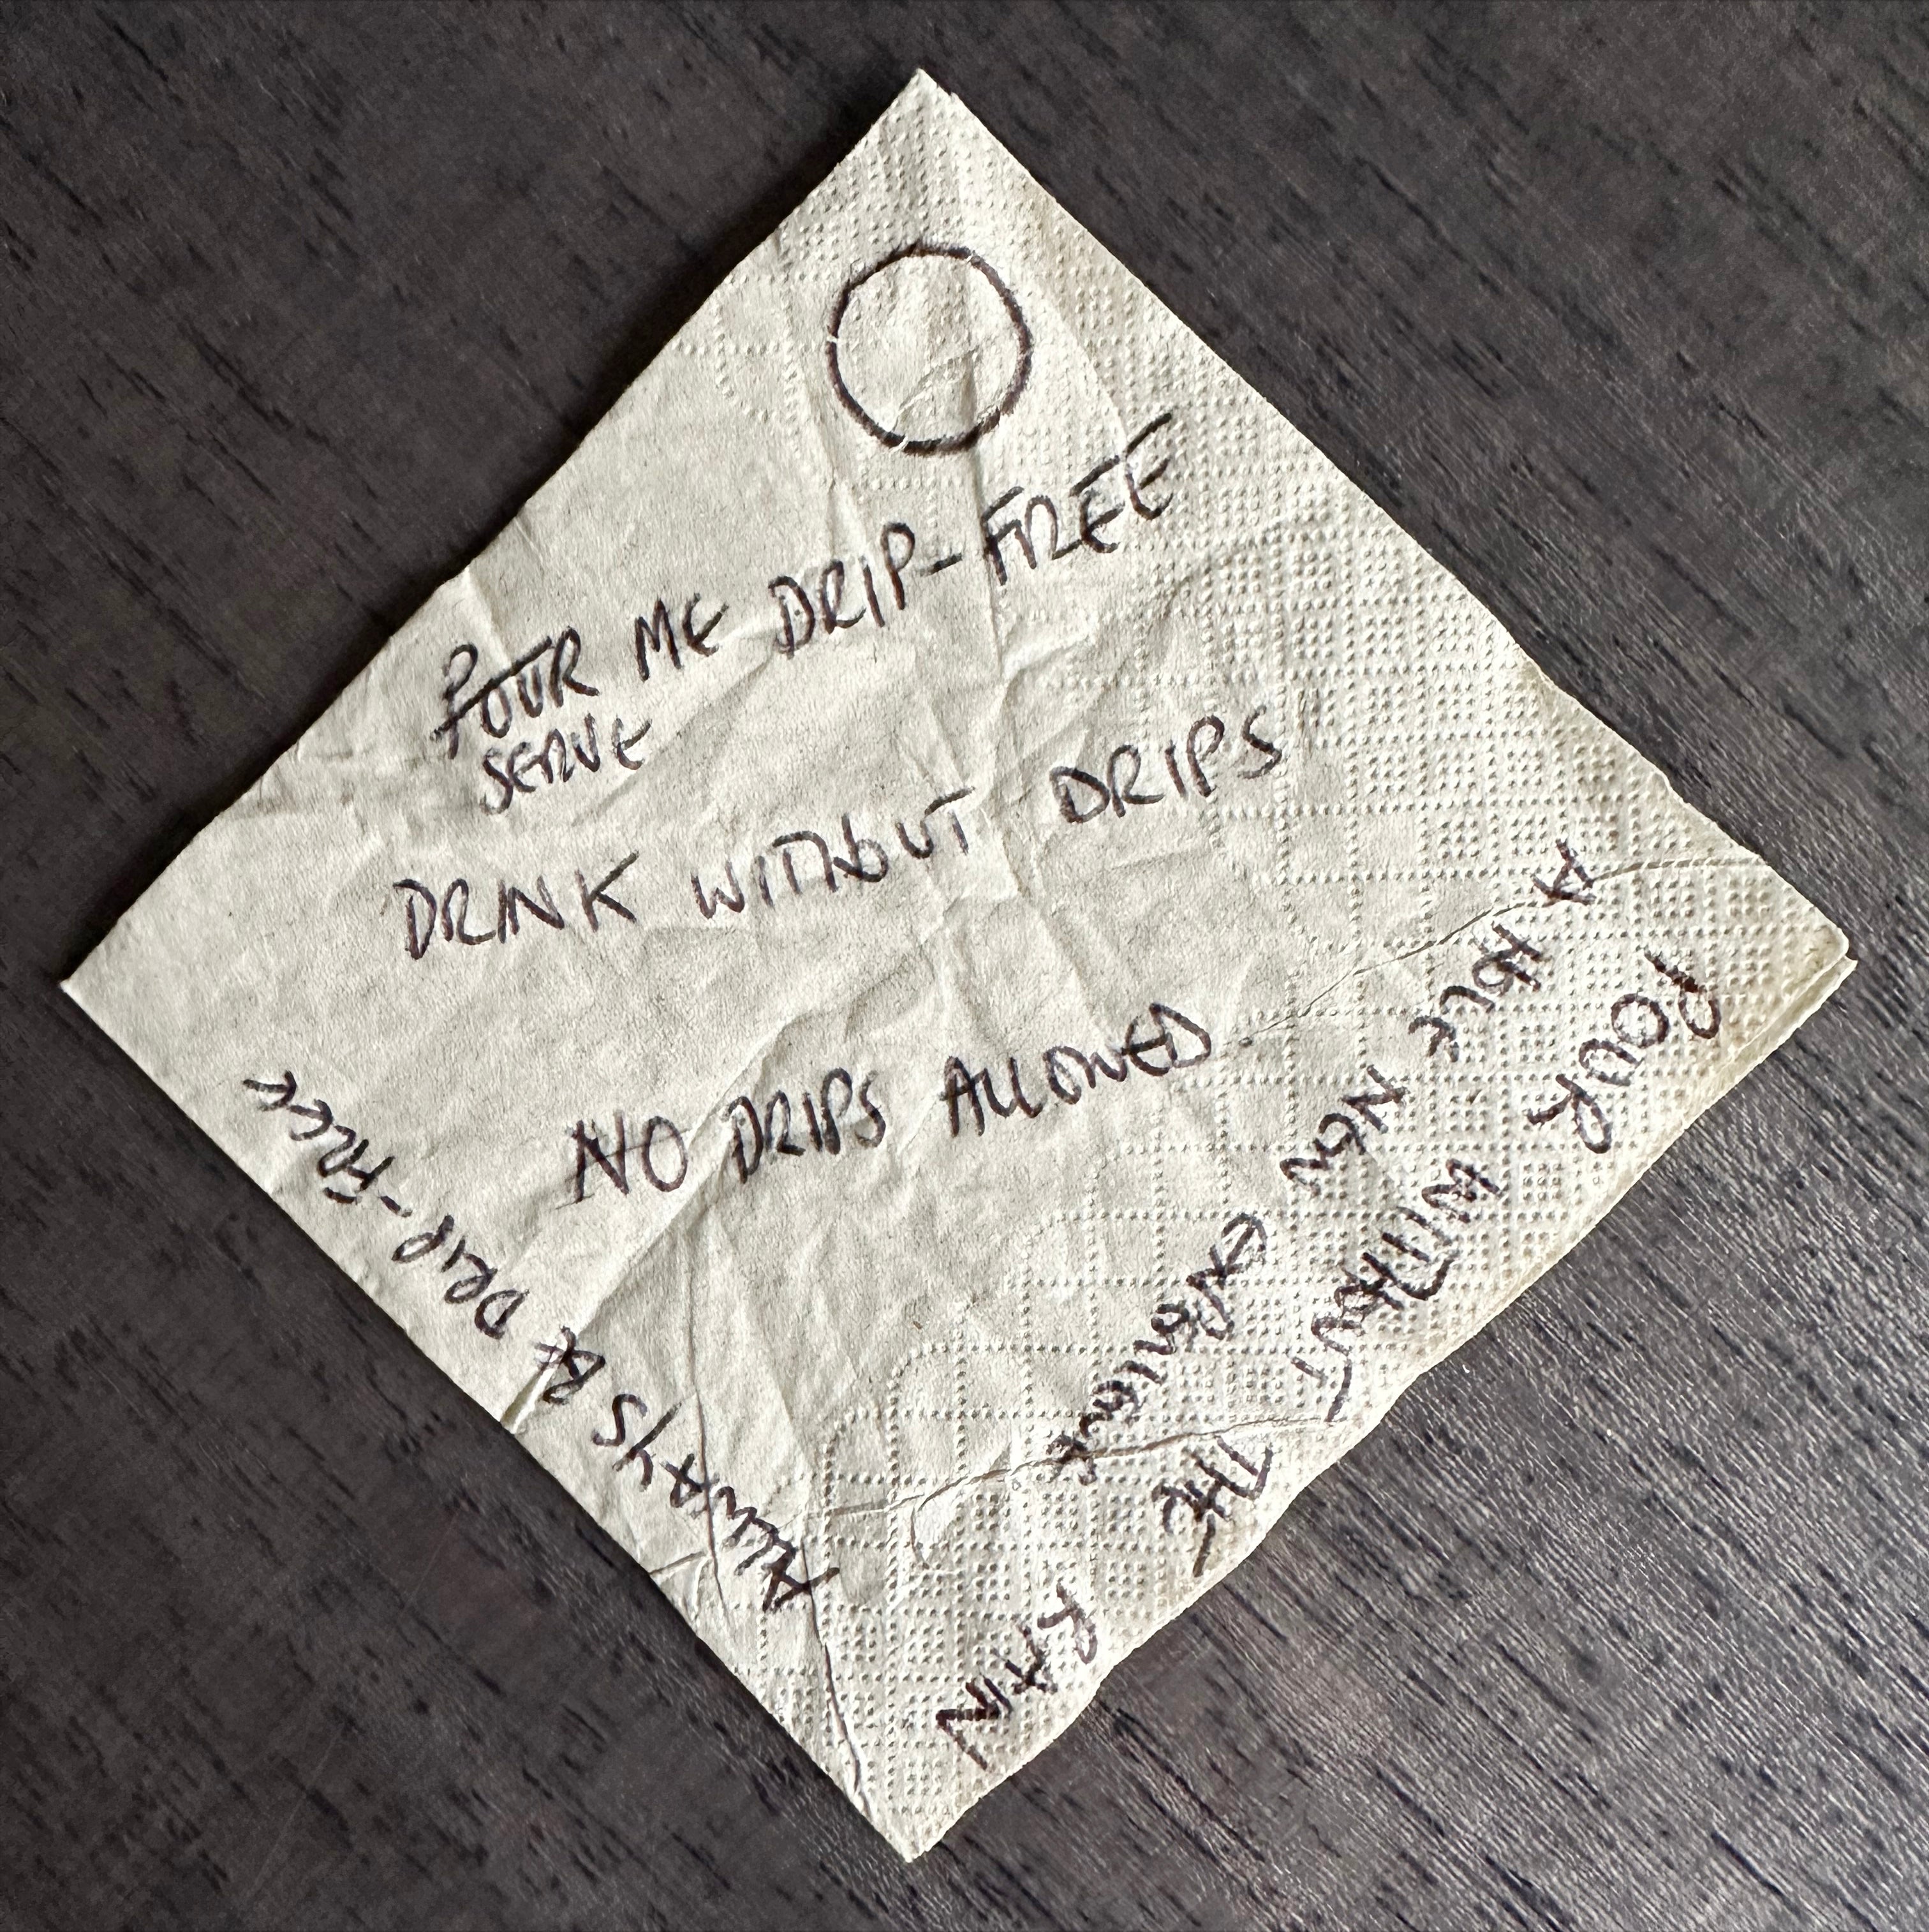 POUR ME DRIP-FREE
SERVE
DRINK WITHOUT DRIPS
NO DRIPS ALLOWED
ALWAYS BE DRIP-FREE
A HOLE NEW EXPERIENCE
POUR WITHOUT THE RAIN